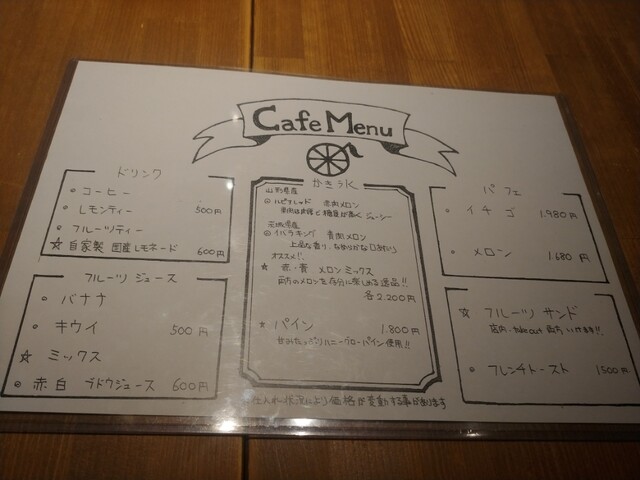 Cafe Menu
ドリンク
コーヒー
レモンティー 500円
フルーツティー
☆ 自家製 国産レモネード 600円
フルーツ ジュース
バナナ
キウイ 500円
☆ ミックス
赤白 ブドウジュース 600円
かき氷
山形県産
赤肉メロン
ジューシー
茨城県産
イバラキング 青肉メロン
上品な香り、なめらかな口あたり
オススメ!!
☆ 赤・青 メロン ミックス
両方のメロンを存分に楽しめる逸品!!
各2.200円
☆ パイン 1.800円
甘みたっぷりハニーグローパイン使用!!
パフェ
イチゴ 1.980円
メロン 1.680円
☆ フルーツ サンド
店内・takeout 両方 いけます!!
フレンチトースト 1500円
仕入れ状況により価格が変動する事があります